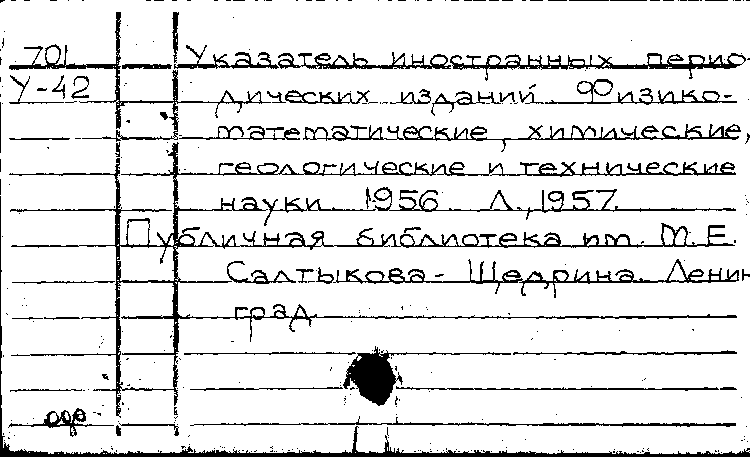 701 Указатель иностранных перио-
У-42 дических изданий. Физико-
математические, химические,
геологические и технические
науки 1956 Л., 1957.
Публичная библиотека им. М.Е.
Салтыкова-Щедрина. Ленин
град.